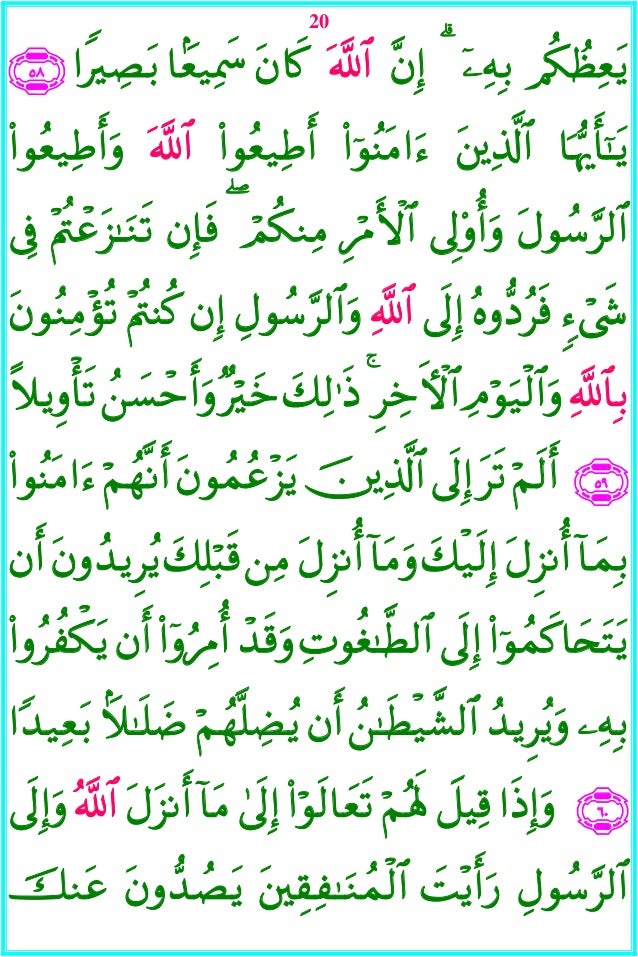 20
يَعِظُكُم بِهِۦٓ ۗ إِنَّ ٱللَّهَ كَانَ سَمِيعًۢا بَصِيرًا ٥٨
يَـٰٓأَيُّهَا ٱلَّذِينَ ءَامَنُوٓا۟ أَطِيعُوا۟ ٱللَّهَ وَأَطِيعُوا۟
ٱلرَّسُولَ وَأُو۟لِى ٱلْأَمْرِ مِنكُمْ ۖ فَإِن تَنَـٰزَعْتُمْ فِى
شَىْءٍ فَرُدُّوهُ إِلَى ٱللَّهِ وَٱلرَّسُولِ إِن كُنتُمْ تُؤْمِنُونَ
بِٱللَّهِ وَٱلْيَوْمِ ٱلْـَٔاخِرِ ۚ ذَٰلِكَ خَيْرٌ وَأَحْسَنُ تَأْوِيلًا
٥٩ أَلَمْ تَرَ إِلَى ٱلَّذِينَ يَزْعُمُونَ أَنَّهُمْ ءَامَنُوا۟
بِمَآ أُنزِلَ إِلَيْكَ وَمَآ أُنزِلَ مِن قَبْلِكَ يُرِيدُونَ أَن
يَتَحَاكَمُوٓا۟ إِلَى ٱلطَّـٰغُوتِ وَقَدْ أُمِرُوٓا۟ أَن يَكْفُرُوا۟
بِهِۦ وَيُرِيدُ ٱلشَّيْطَـٰنُ أَن يُضِلَّهُمْ ضَلَـٰلًۢا بَعِيدًا
٦٠ وَإِذَا قِيلَ لَهُمْ تَعَالَوْا۟ إِلَىٰ مَآ أَنزَلَ ٱللَّهُ وَإِلَى
ٱلرَّسُولِ رَأَيْتَ ٱلْمُنَـٰفِقِينَ يَصُدُّونَ عَنكَ